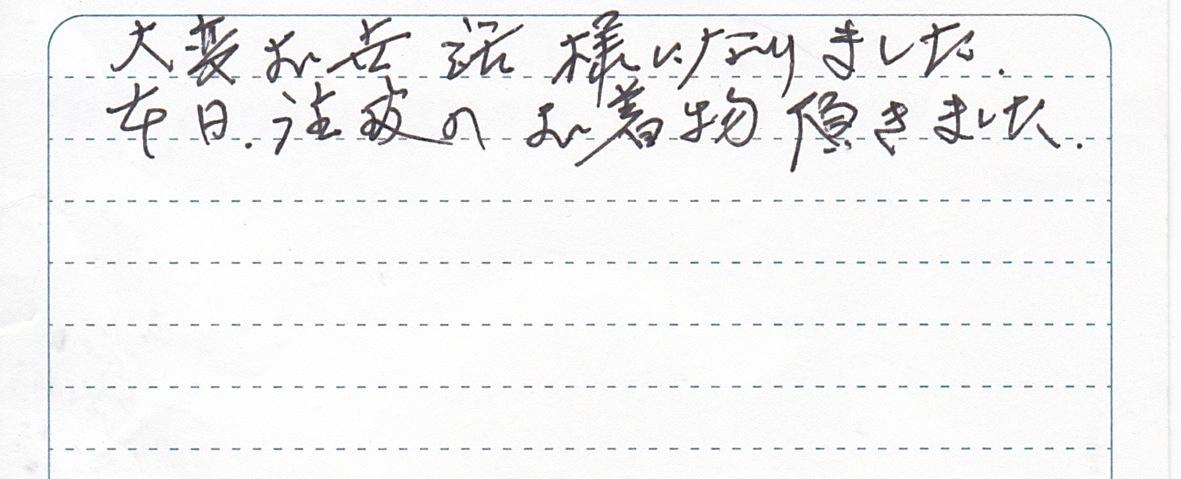 大変お世話様になりました.
本日.注文の お着物 頂きました.